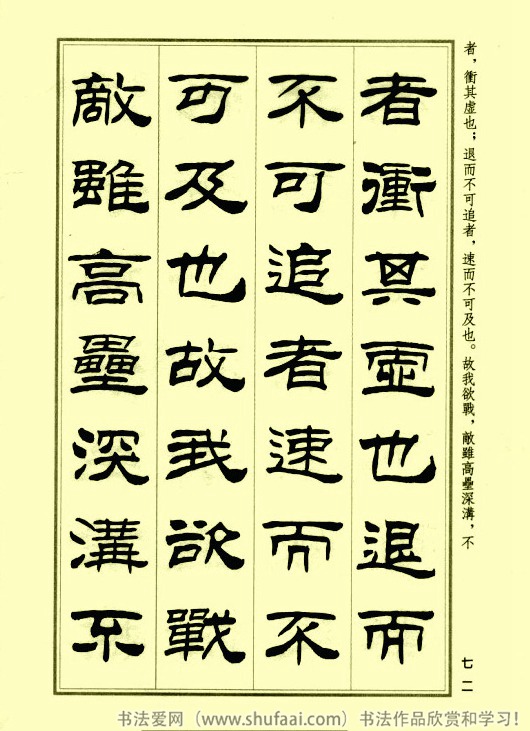 者，衝其虛也；退而不可追者，速而不可及也。故我欲戰，敵雖高壘深溝，不
者衝其虛也退而
不可追者速而不
可及也故我欲戰
敵雖高壘深溝不
七二
书法爱网（www.shufaai.com）书法作品欣赏和学习！